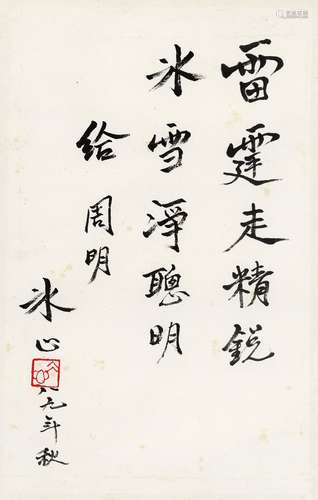 雷霆走精銳
冰雪淨聰明
給
周明
冰心
八九年秋